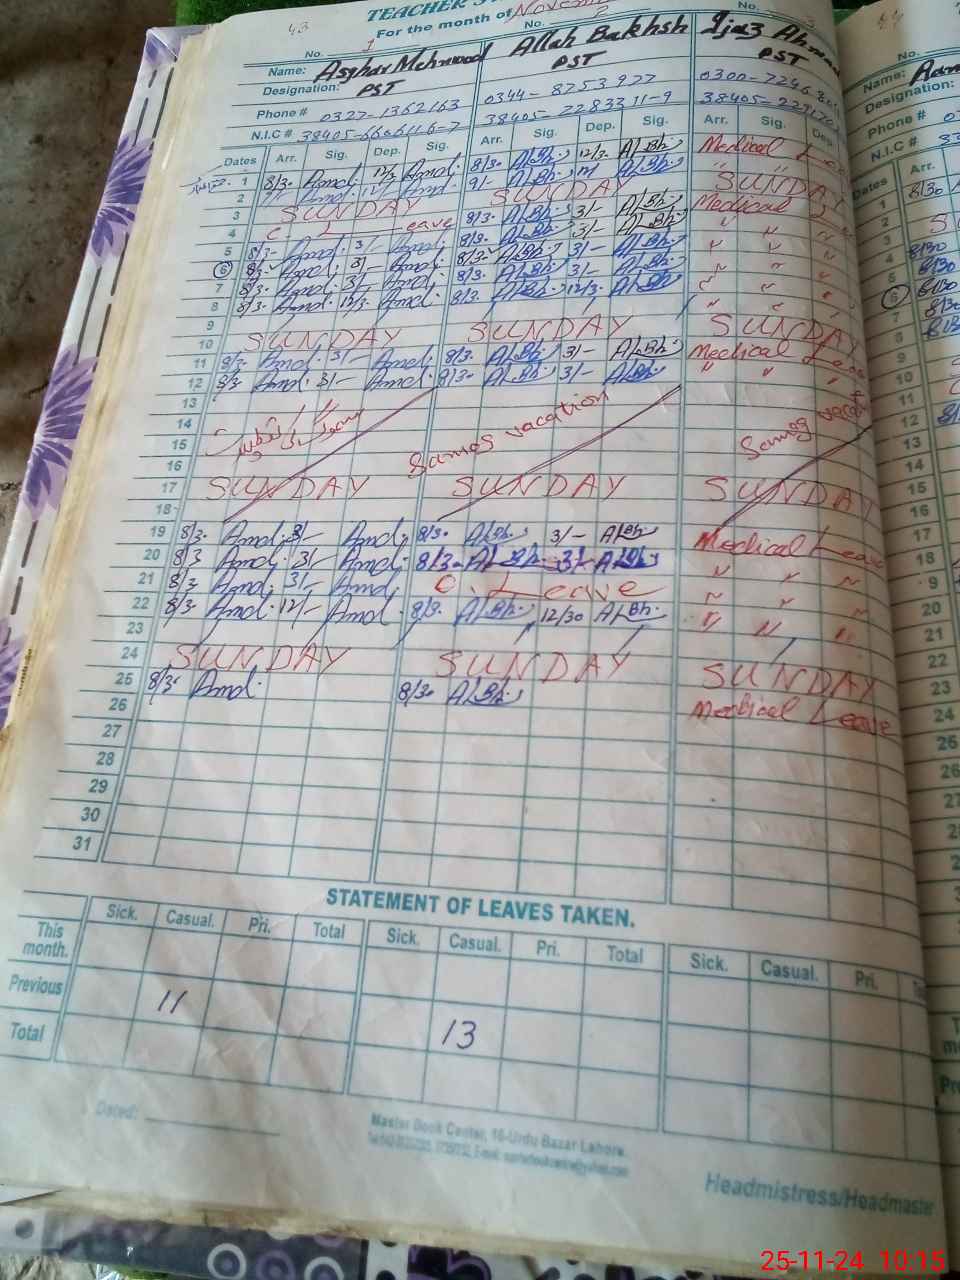 43
TEACHER
For the month of Novem
No. 1 No. 2 No. 3
Name: Asghar Mehmood Allah Bakhsh Ijaz Ahm
Designation: PST PST PST
Phone # 0327-1362163 0344-8753977 0300-7246
N.I.C # 38405-6606116-7 38405-2283311-9 38405-
Dates Arr. Sig. Dep. Sig. Arr. Sig. Dep. Sig. Arr. Sig. Dep.
1 8/3. Amd. 12/3 Amd. 8/3. ALBh. 12/3. ALBh. Medical Le
2 Amd. Amd. 9/- ALBh. ALBh. " "
3 SUNDAY SUNDAY SUNDAY
4 C. Leave 8/3. ALBh. 3/- ALBh. Medical L
5 8/3- Amd. 3/- Amd. 8/3. ALBh. 3/- ALBh. " " "
6 8/3- Amd. 3/- Amd. 8/3. ALBh. 3/- ALBh. " " "
7 8/3- Amd. 3/- Amd. 8/3. ALBh. 3/- ALBh. " " "
8 8/3. Amd. 12/3. Amd. 8/3. ALBh. 12/3. ALBh. " " "
9
10 SUNDAY SUNDAY SUNDAY
11 8/3. Amd. 3/- Amd. 8/3. ALBh. 3/- ALBh. Medical Lea
12 8/3. Amd. 3/- Amd. 8/3. ALBh. 3/- ALBh. " " "
13
14 Samog vacation Samog vacati
15
16
17 SUNDAY SUNDAY SUNDAY
18
19 8/3. Amd. 3/- Amd. 8/3. ALBh. 3/- ALBh. Medical Leave
20 8/3 Amd. 3/- Amd. 8/3. ALBh. 3/- ALBh. " " "
21 8/3 Amd. 3/- Amd. C. Leave " " "
22 8/3. Amd. 12/- Amd. 8/3. ALBh. 12/30 ALBh. " " "
23
24 SUNDAY SUNDAY SUNDAY
25 8/3. Amd. 8/3. ALBh. Medical Leave
26
27
28
29
30
31
STATEMENT OF LEAVES TAKEN.
Sick. Casual. Pri. Total Sick. Casual. Pri. Total Sick. Casual. Pri.
This month.
Previous 11 13
Total
Dated:
Master Book Center, 16-Urdu Bazar Lahore.
Headmistress/Headmaster
No.
Name:
Designation:
Phone #
N.I.C #
Dates Arr.
1 8/30
2
3 S
4 8/30
5 8/30
6 8/30
7 8/30
8 8/30
9
10
11
12
13
14
15
16
17
18
9
20
21
22
23
24
26
26
27
25-11-24 10:15